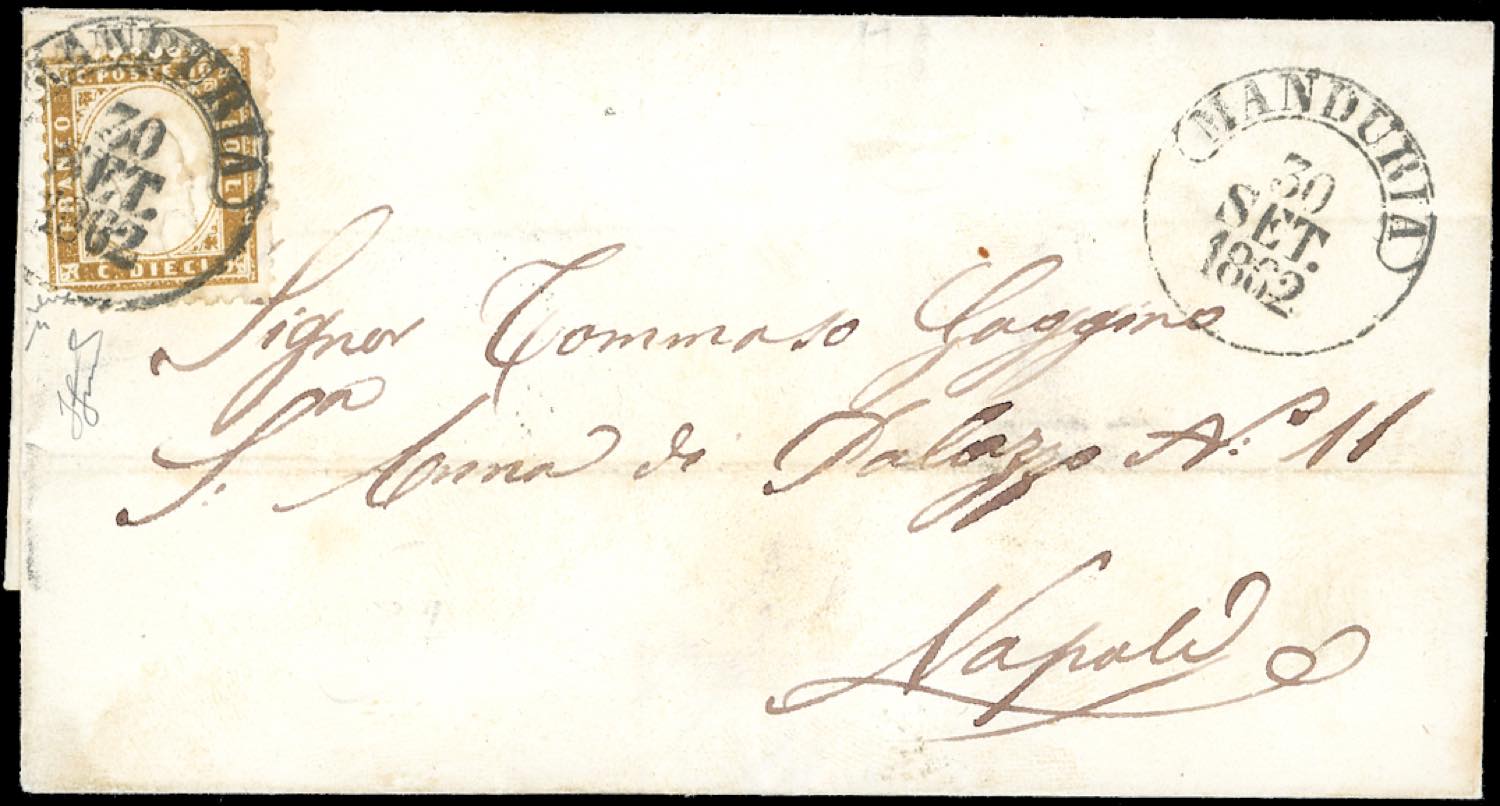 MANDURIA
30
SET.
1862
C. POSTE
FRANCO
BOLLO
C. DIECI
MANDURIA
30
SET.
1862
Signor Tommaso Gaggino
S.ª Anna di Palazzo N.º 11
Napoli